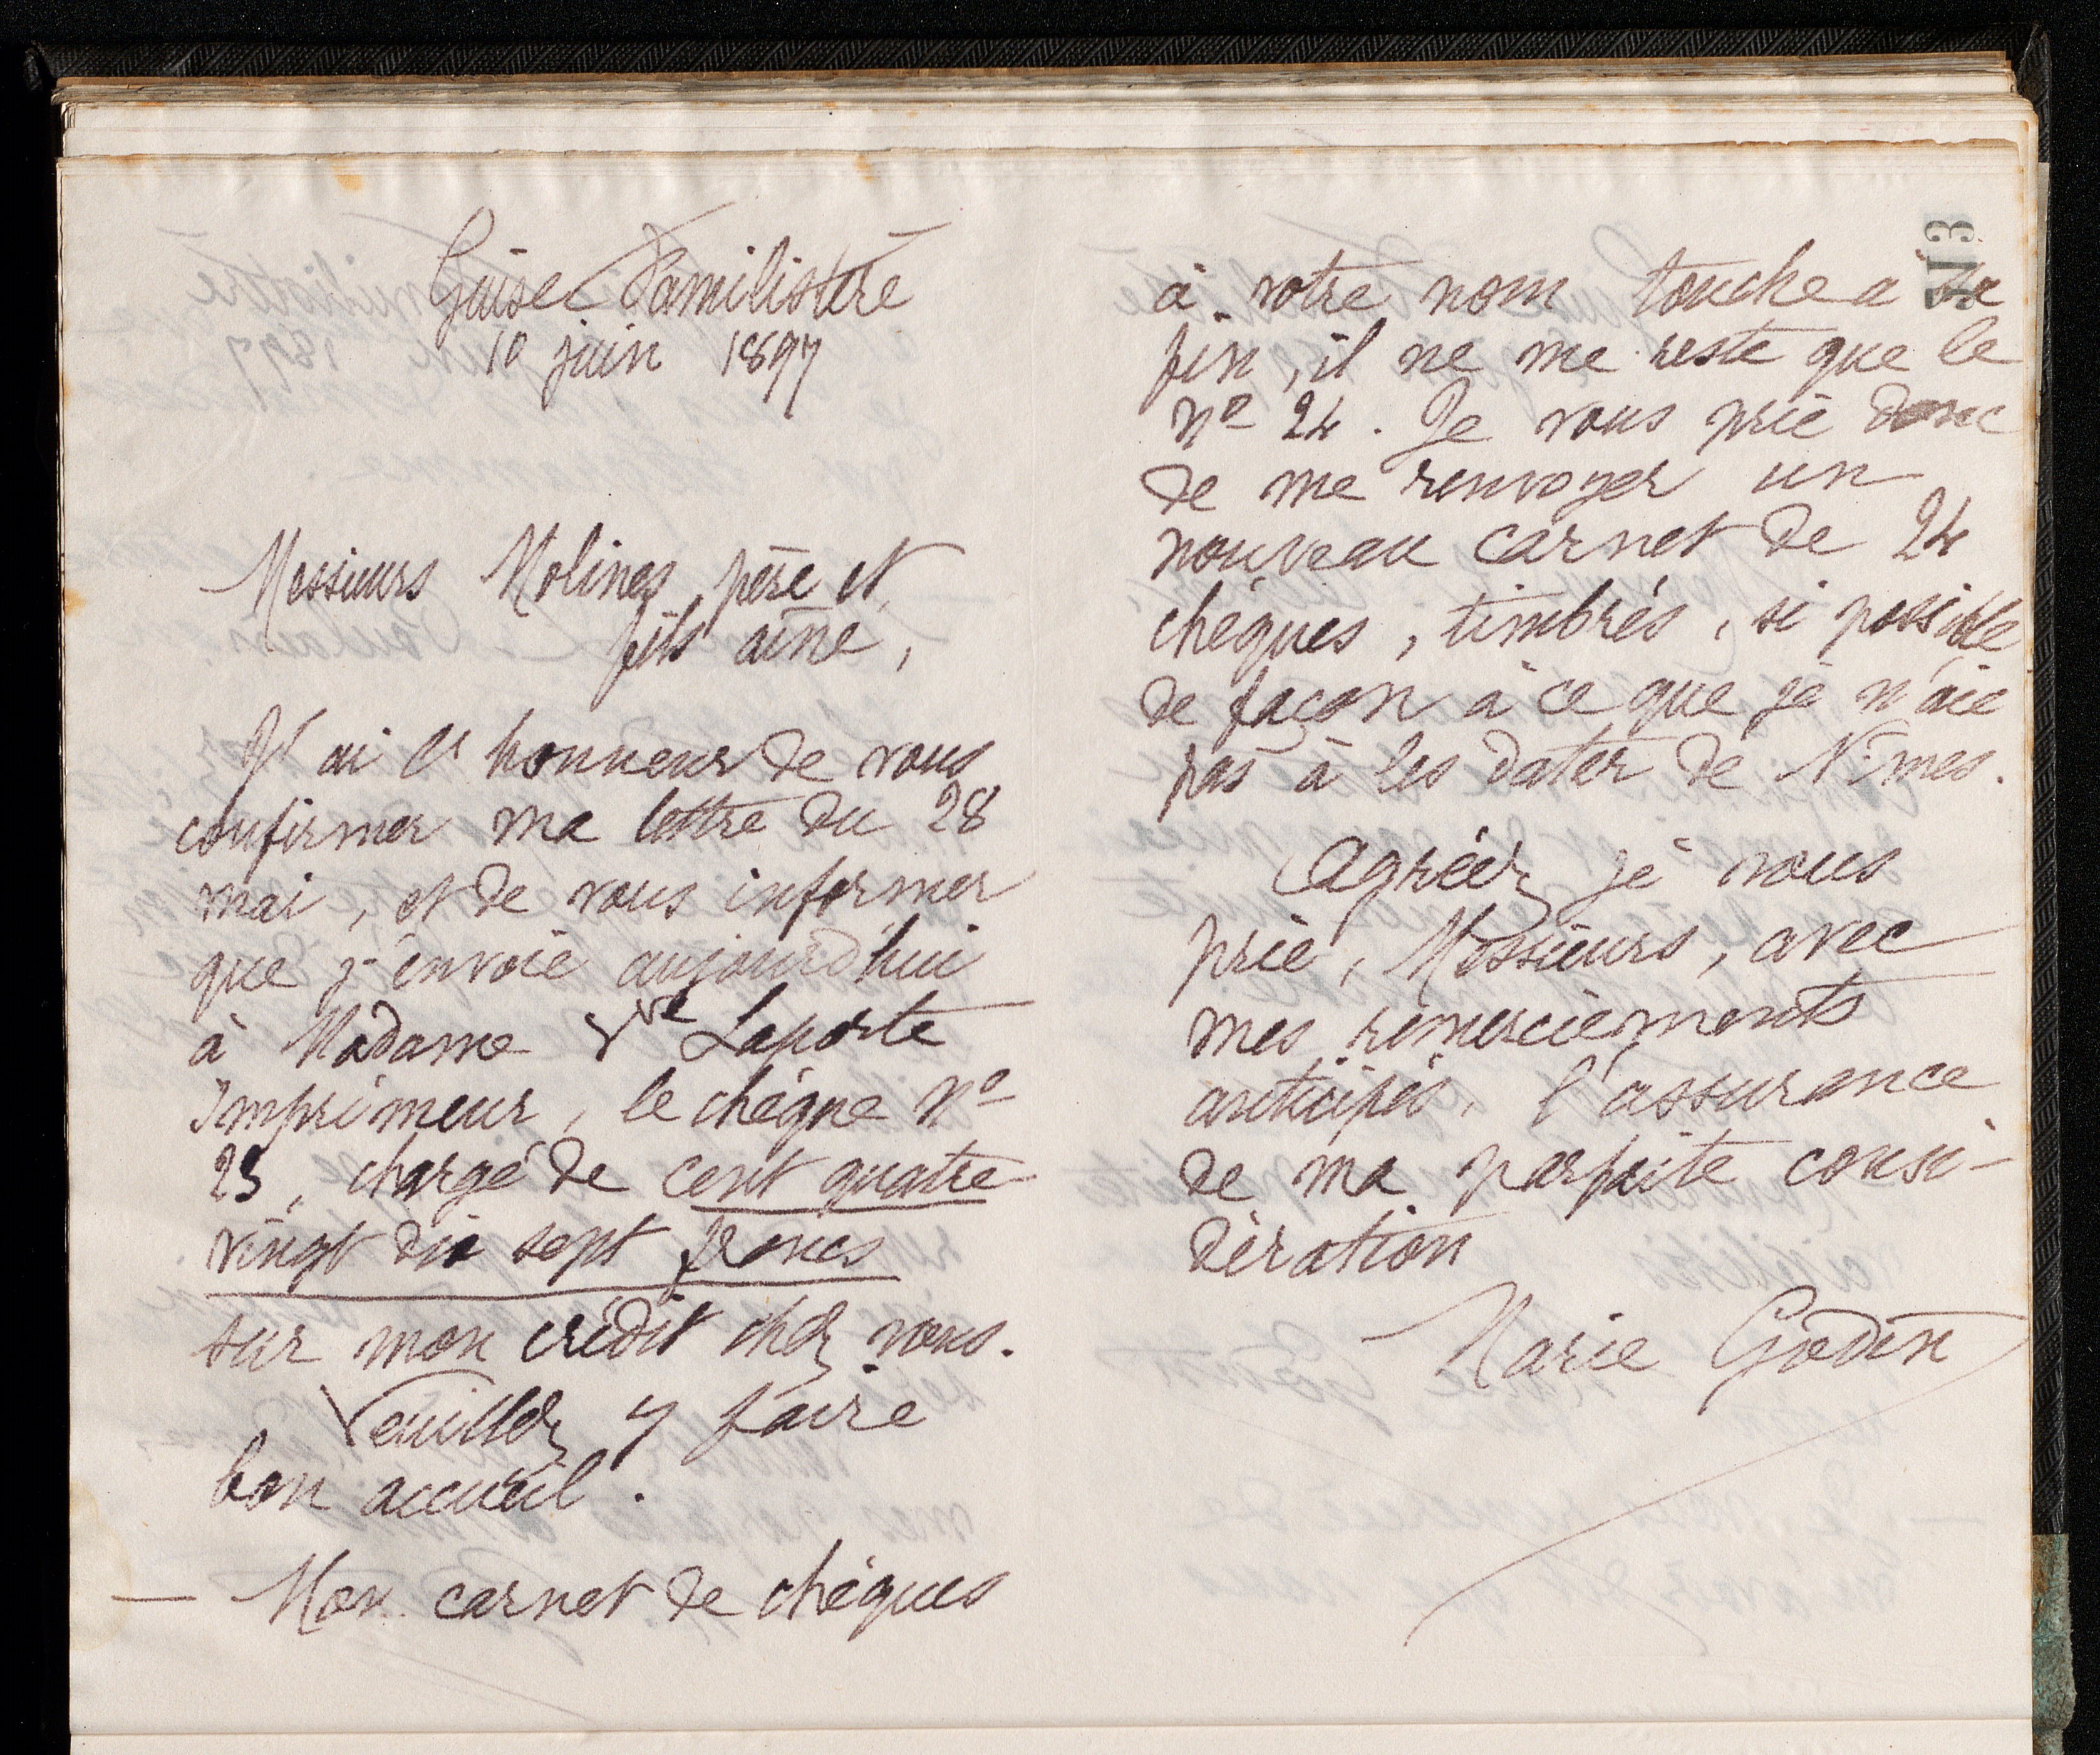 Guise Familistère
10 juin 1897
Messieurs Molines père et
fils aîné,
J'ai l'honneur de vous
confirmer ma lettre du 28
mai, et de vous informer
que j'envoie aujourd'hui
à Madame Vve Laporte
Imprimeur, le chèque No
23, chargé de cent quatre
vingt dix sept francs
sur mon crédit chez vous.
Veuillez y faire
bon accueil.
— Mon carnet de chèques
113
à votre nom touche à sa
fin, il ne me reste que le
No 24. Je vous prie donc
de me renvoyer un
nouveau carnet de 24
chèques, timbrés, si possible
de façon à ce que je n'aie
pas à les dater de Nîmes.
Agréez je vous
prie, Messieurs, avec
mes remerciements
anticipés, l'assurance
de ma parfaite consi-
dération
Marie Godin